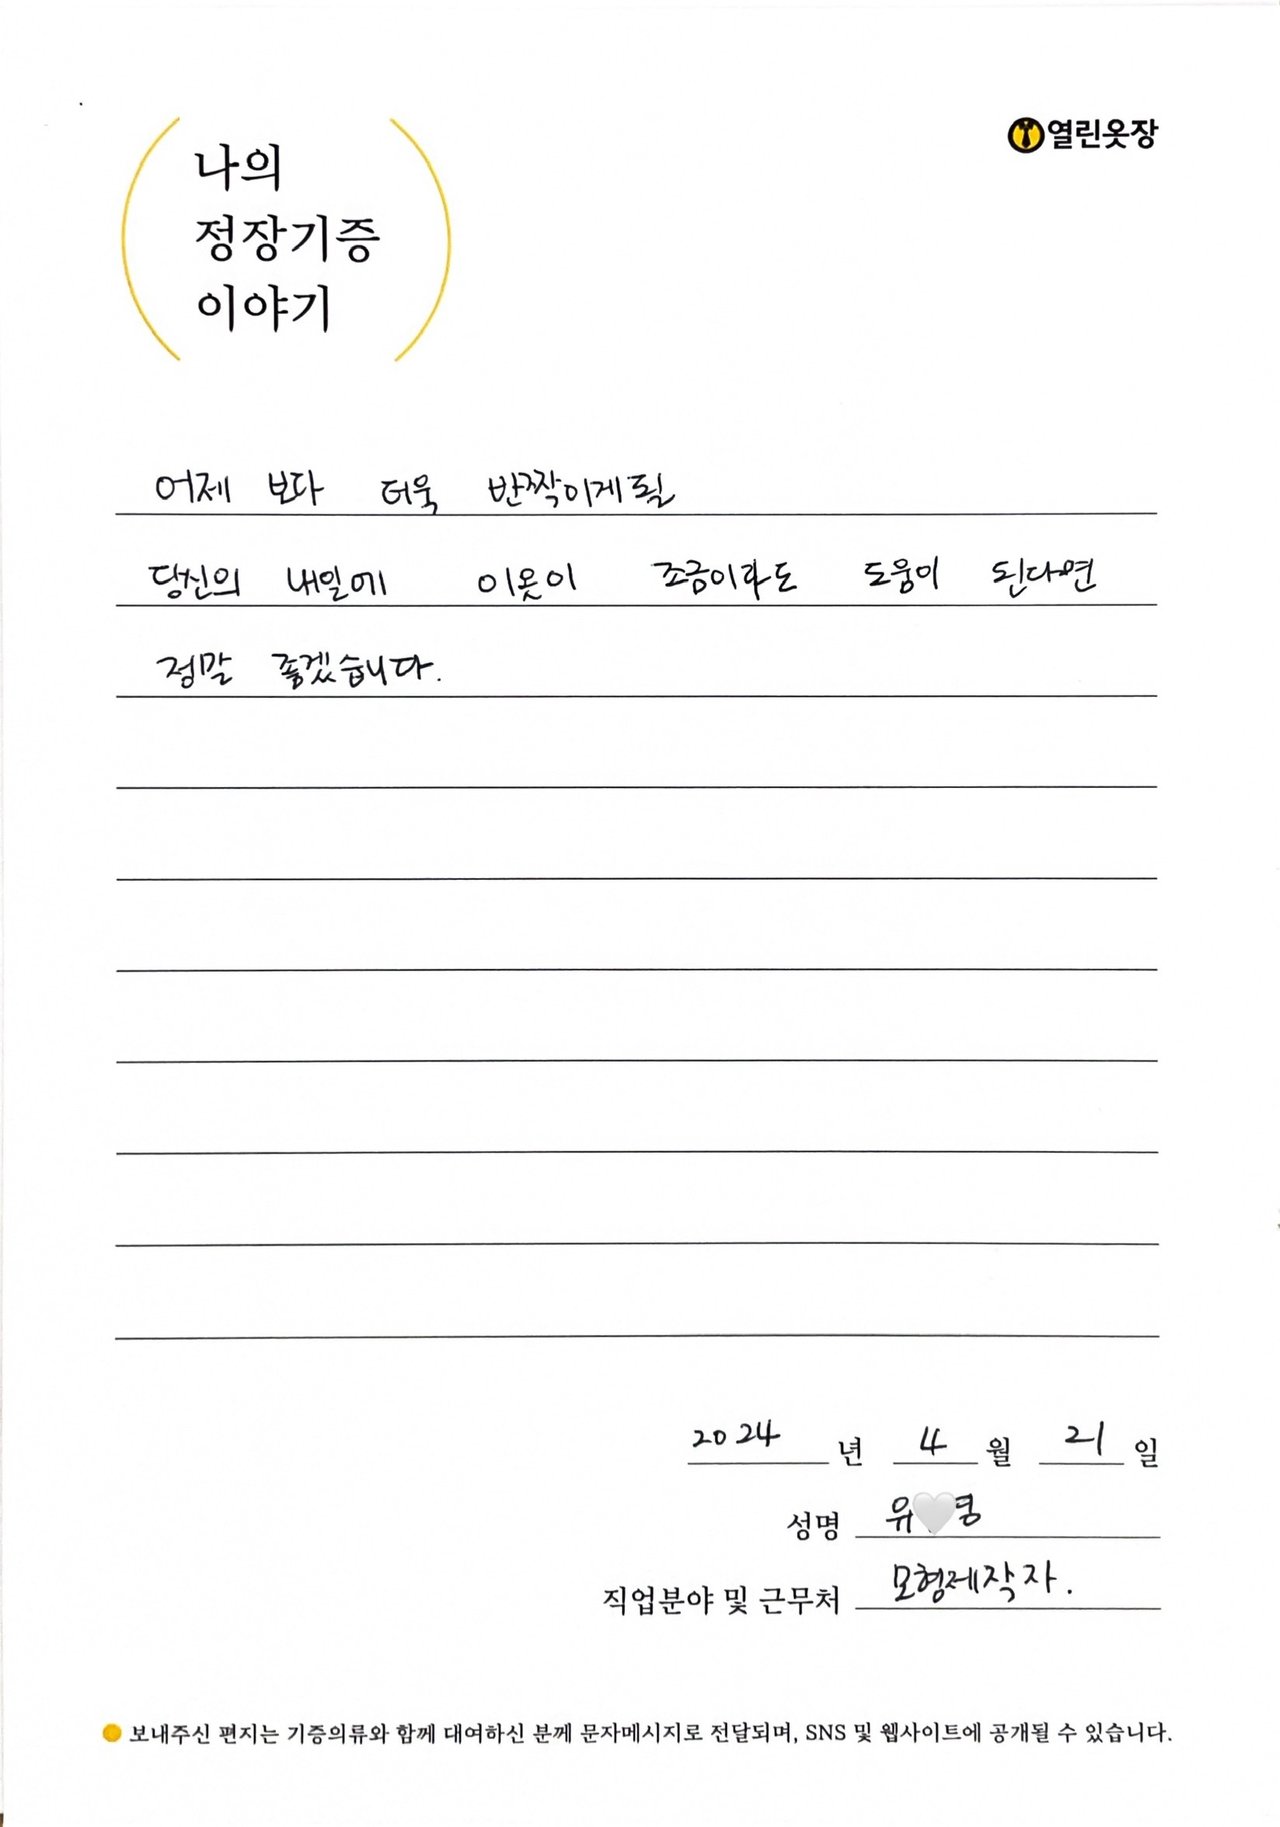 열린옷장
나의
정장기증
이야기
어제 보다 더욱 반짝이게될
당신의 내일에 이옷이 조금이라도 도움이 된다면
정말 좋겠습니다.
2024 년 4 월 21 일
성명 유
직업분야 및 근무처 모형제작자.
보내주신 편지는 기증의류와 함께 대여하신 분께 문자메시지로 전달되며, SNS 및 웹사이트에 공개될 수 있습니다.